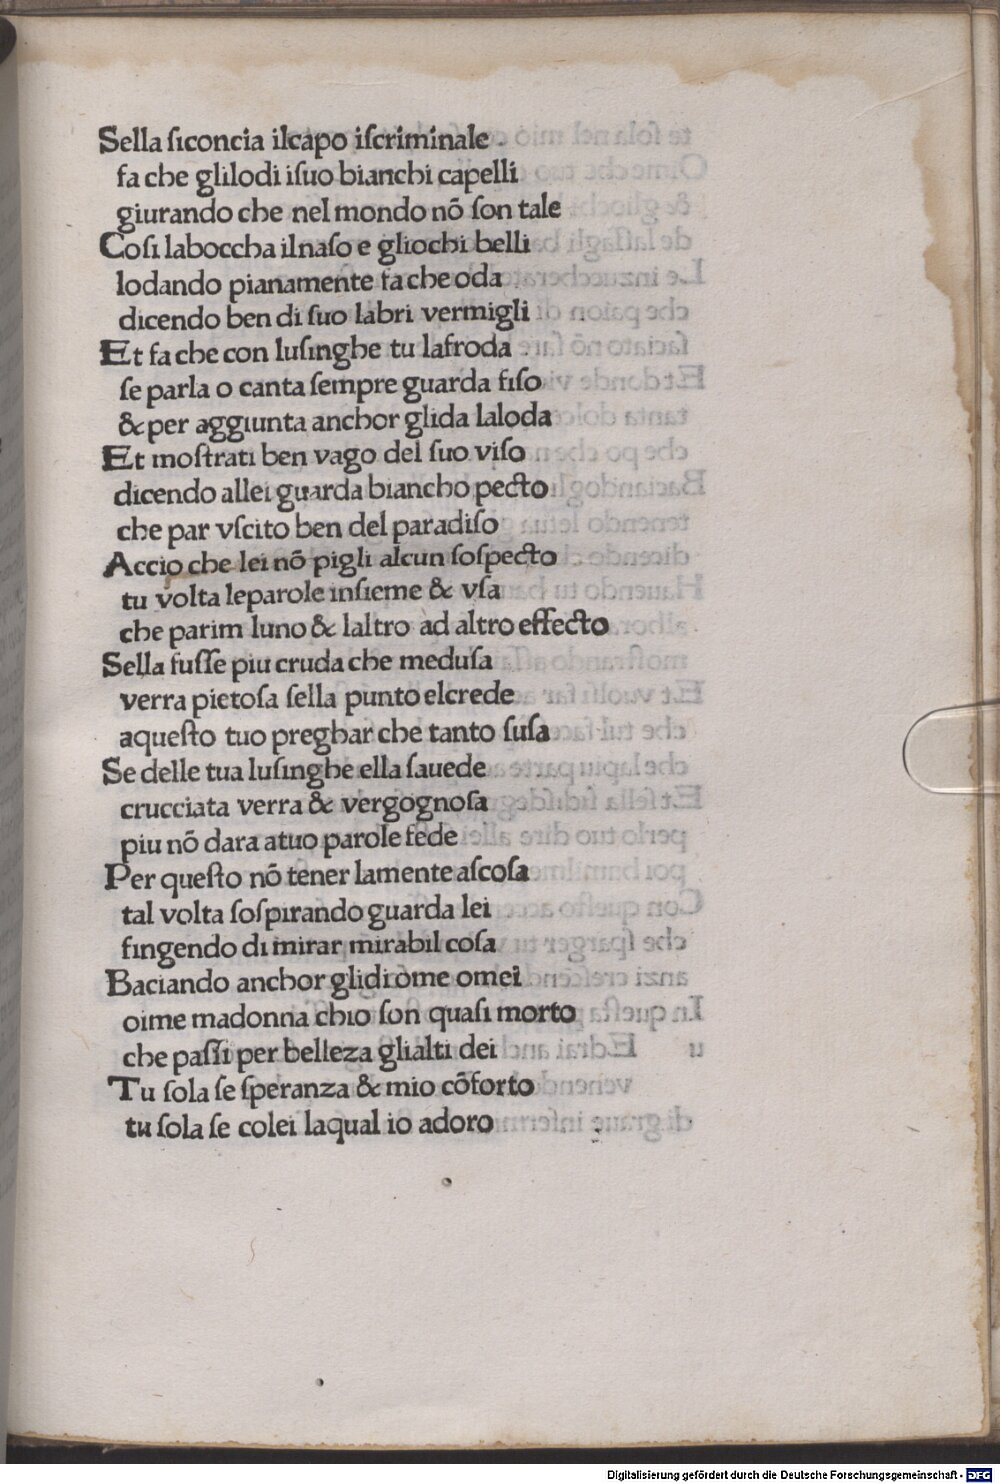 Sella ſiconcia ilcapo iſcriminale
fa che glilodi iſuo bianchi capelli
giurando che nel mondo nō ſon tale
Coſi laboccha ilnaſo e gliochi belli
lodando pianamente fa che oda
dicendo ben di ſuo labri vermigli
Et fa che con luſinghe tu lafroda
ſe parla o canta ſempre guarda fiſo
& per aggiunta anchor glida laloda
Et moſtrati ben vago del ſuo viſo
dicendo allei guarda biancho pecto
che par vſcito ben del paradiſo
Accio che lei nō pigli alcun ſoſpecto
tu volta leparole inſieme & vſa
che parim luno & laltro ad altro effecto
Sella fuſſe piu cruda che meduſa
verra pietoſa ſella punto elcrede
aqueſto tuo preghar che tanto ſuſa
Se delle tua luſinghe ella ſauede
crucciata verra & vergognoſa
piu nō dara atuo parole fede
Per queſto nō tener lamente aſcoſa
tal volta ſoſpirando guarda lei
fingendo di mirar mirabil coſa
Baciando anchor glidi ome omei
oime madonna chio ſon quaſi morto
che paſſi per belleza glialti dei
Tu ſola ſe ſperanza & mio cōforto
tu ſola ſe colei laqual io adoro
Digitalisierung gefördert durch die Deutsche Forschungsgemeinschaft - DFG